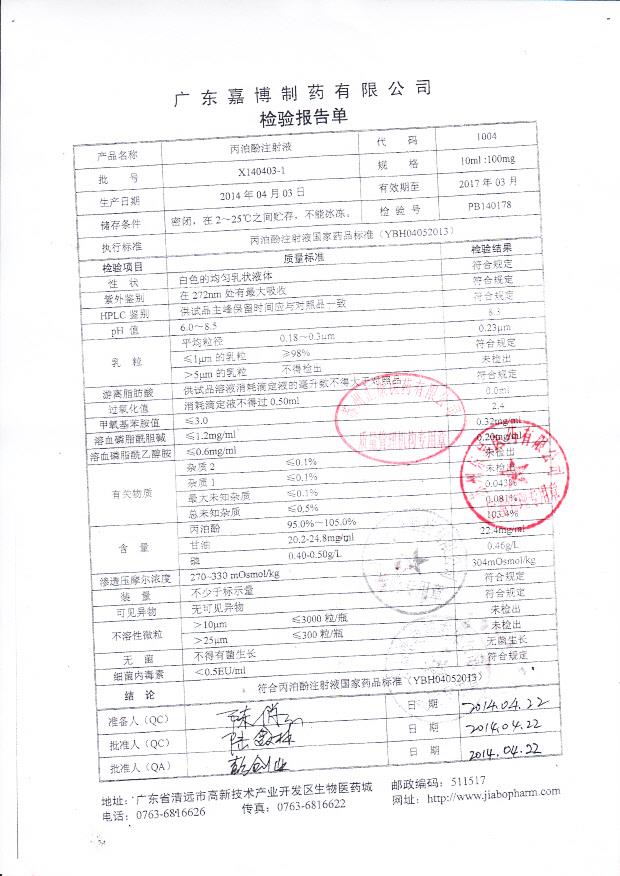 广东嘉博制药有限公司
检验报告单
产品名称 丙泊酚注射液 代码 1004
批号 X140403-1 规格 10ml:100mg
生产日期 2014 年 04 月 03 日 有效期至 2017 年 03 月
储存条件 密闭，在 2~25℃之间贮存，不能冰冻。 检验号 PB140178
执行标准 丙泊酚注射液国家药品标准（YBH04052013）
检验项目 质量标准 检验结果
性状 白色的均匀乳状液体 符合规定
紫外鉴别 在 272nm 处有最大吸收 符合规定
HPLC 鉴别 供试品主峰保留时间应与对照品一致 符合规定
pH 值 6.0～8.5 8.3
乳粒 平均粒径 0.18~0.3μm 0.23μm
≤1μm 的乳粒 ≥98% 符合规定
>5μm 的乳粒 不得检出 未检出
游离脂肪酸 供试品溶液消耗滴定液的毫升数不得大于对照品 符合规定
过氧化值 消耗滴定液不得过 0.50ml 0.0ml
甲氧基苯胺值 ≤3.0 2.4
溶血磷脂酰胆碱 ≤1.2mg/ml 0.32mg/ml
溶血磷脂酰乙醇胺 ≤0.6mg/ml 0.20mg/ml
有关物质 杂质 2 ≤0.1% 未检出
杂质 1 ≤0.1% 未检出
最大未知杂质 ≤0.1% 0.043%
总未知杂质 ≤0.5% 0.081%
含量 丙泊酚 95.0%~105.0% 103.4%
甘油 20.2-24.8mg/ml 22.4mg/ml
磷 0.40-0.50g/L 0.46g/L
渗透压摩尔浓度 270~330 mOsmol/kg 304mOsmol/kg
装量 不少于标示量 符合规定
可见异物 无可见异物 符合规定
不溶性微粒 >10μm ≤3000 粒/瓶 未检出
>25μm ≤300 粒/瓶 未检出
无菌 不得有菌生长 无菌生长
细菌内毒素 <0.5EU/ml 符合规定
结论 符合丙泊酚注射液国家药品标准（YBH04052013）
准备人（QC） 日期 2014.04.22
批准人（QC） 日期 2014.04.22
批准人（QA） 日期 2014.04.22
地址：广东省清远市高新技术产业开发区生物医药城 邮政编码：511517
电话：0763-6816626 传真：0763-6816622 网址：http://www.jiabopharm.com
质量管理机构专用章